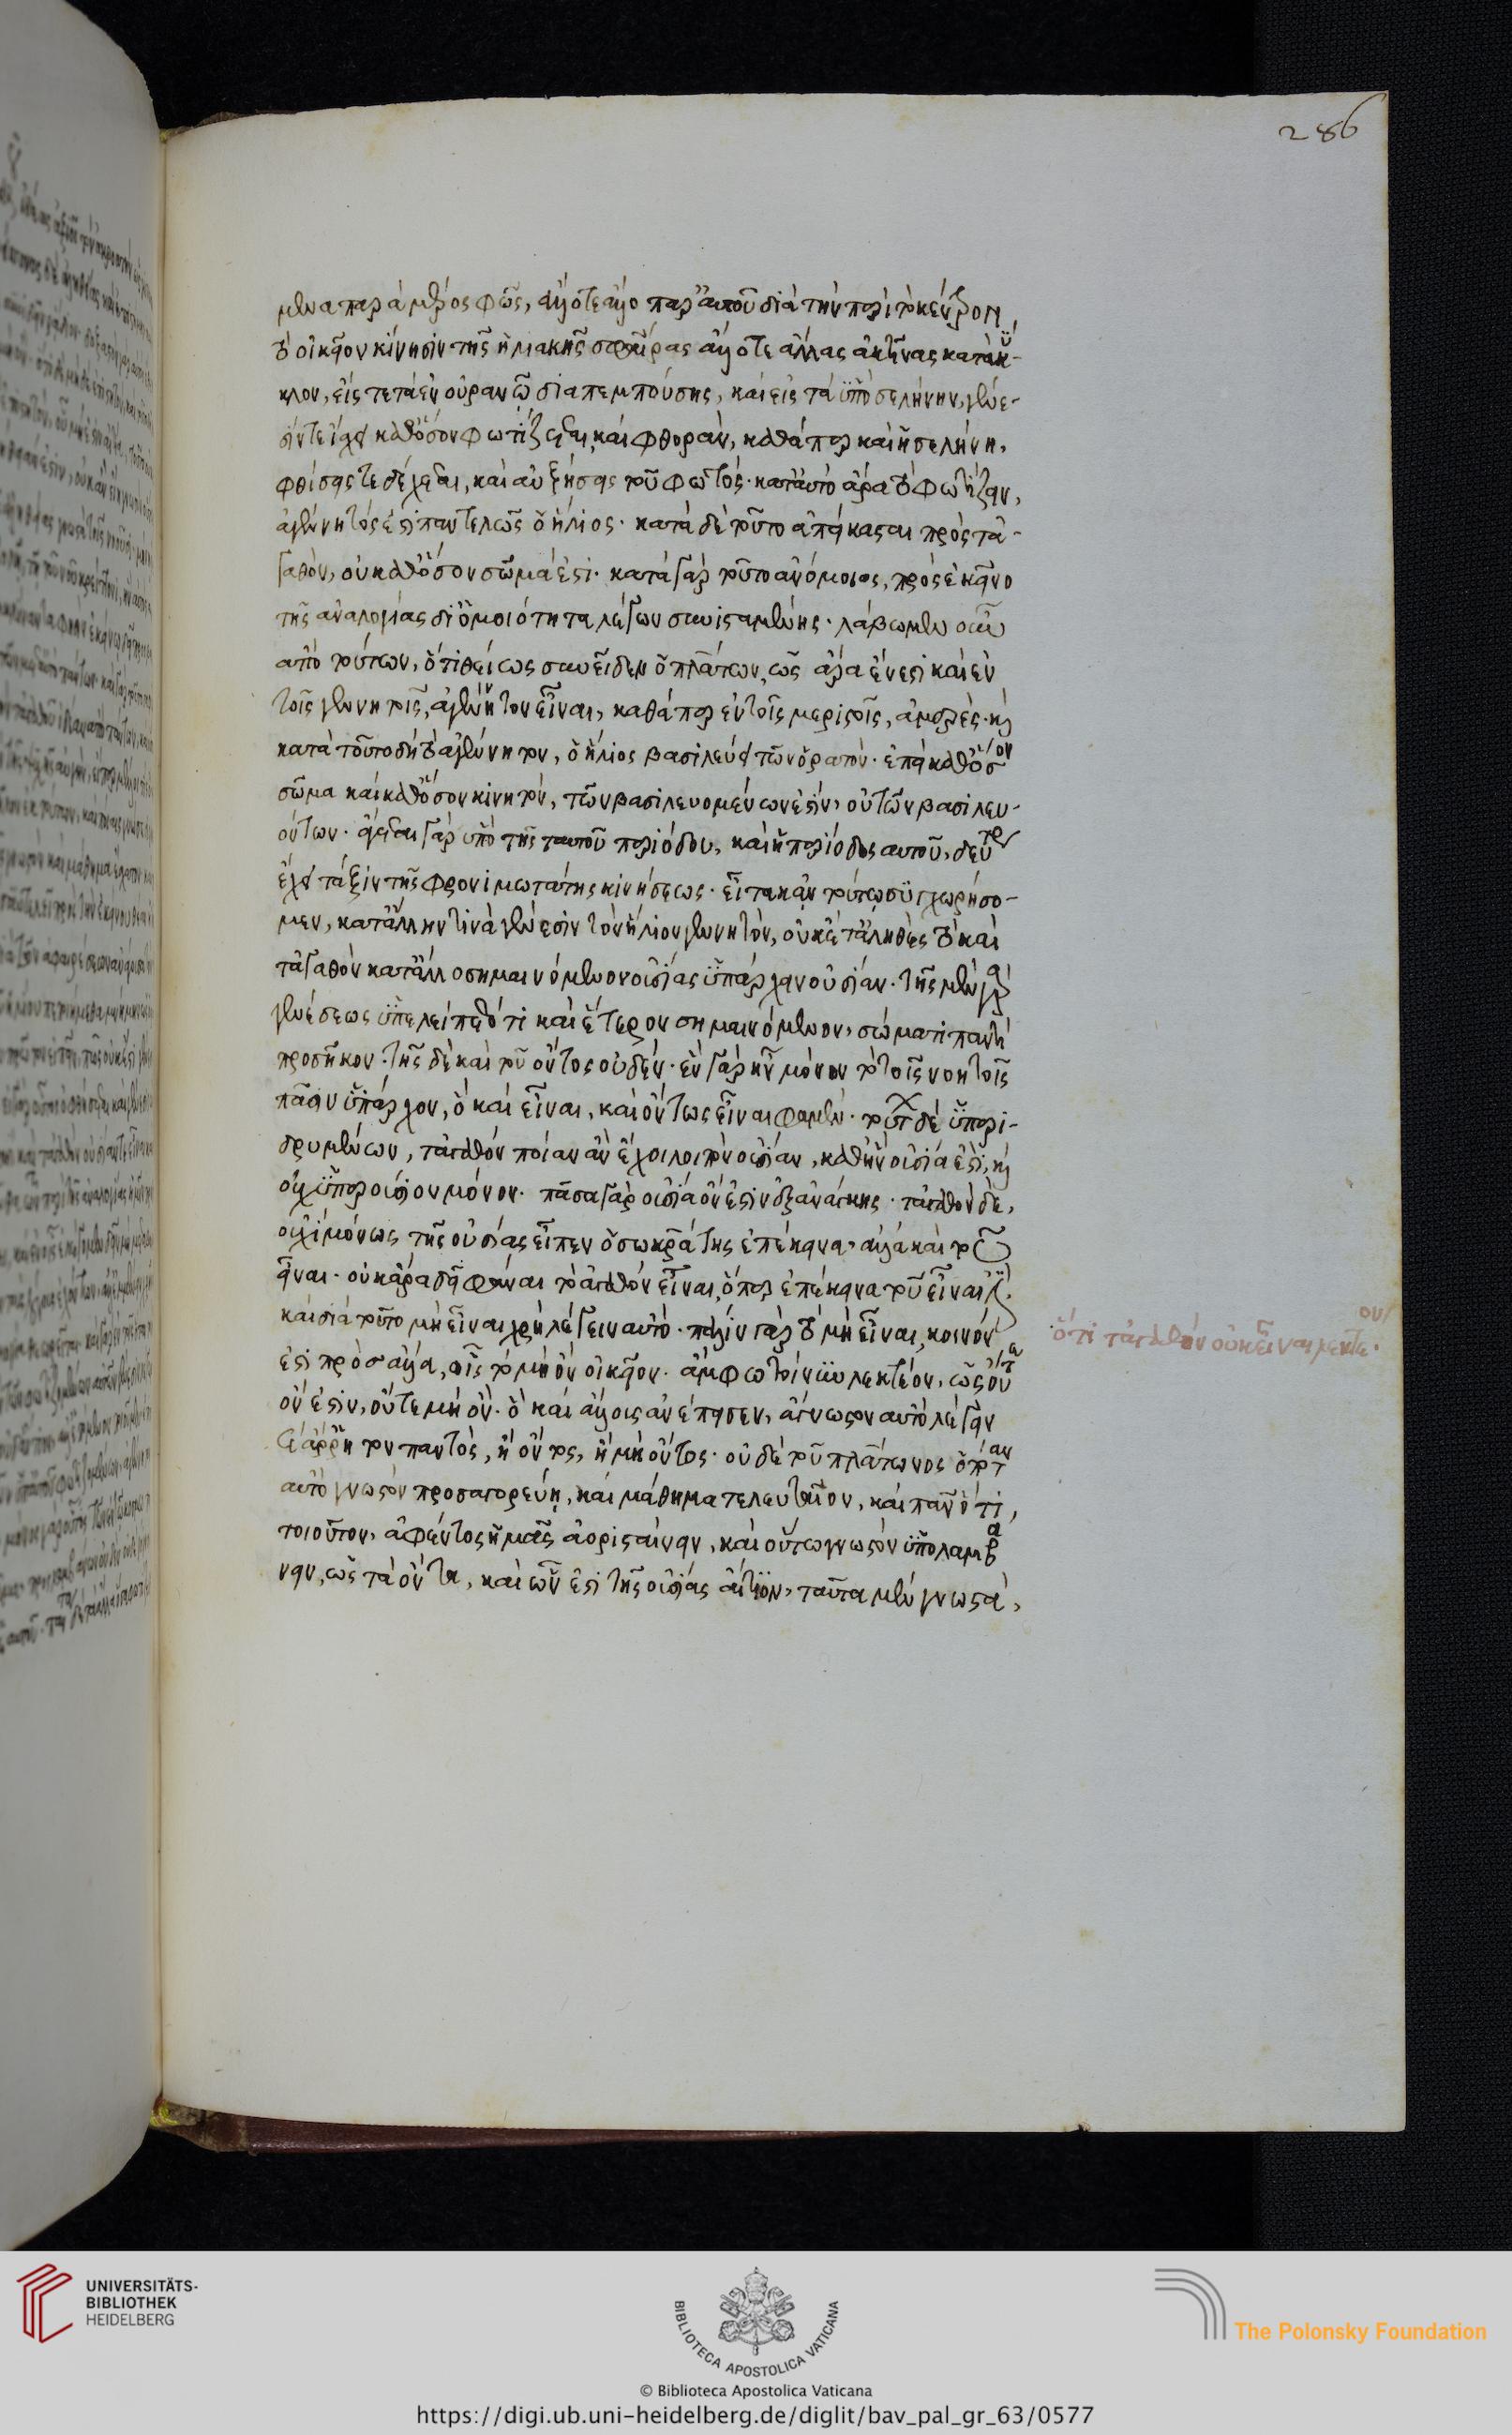 286
μενα παρὰ μέρος φῶς, ἄλλοτε ἄλλο παρ' αὐτοῦ διὰ τὴν περὶ τὸ κέντρον
τὸ οἰκεῖον κίνησιν τῆς ἡλιακῆς σφαίρας ἄλλοτε ἄλλας ἀκτῖνας κατὰ κύ-
κλον, εἴς τε τὰ ἐν οὐρανῷ διαπεμπούσης, καὶ εἰς τὰ ὑπὸ σελήνην, γένε-
σίν τε ἔχει καθ' ὅσον φωτίζεται, καὶ φθορὰν, καθάπερ καὶ ἡ σελήνη.
φθίσεις τε δέχεται, καὶ αὐξήσεις τοῦ φωτός. κατ' αὐτὸ ἄρα τὸ φωτίζειν,
ἀγένητός ἐστι παντελῶς ὁ ἥλιος. κατὰ δὲ τοῦτο ἀπείκασται πρὸς τἀ-
γαθὸν, οὐ καθ' ὅσον σῶμά ἐστι. κατὰ γὰρ τοῦτο ἀνόμοιος, πρὸς ἐκεῖνο
τῆς ἀναλογίας δι' ὁμοιότητα λέγων συνισταμένης. λάβωμεν οὖν
ἀπὸ τούτων, ὅτι θείως συνεῖδεν ὁ πλάτων, ὡς ἄρα ἔνεστι καὶ ἐν
τοῖς γενητοῖς, ἀγένητον εἶναι, καθάπερ ἐν τοῖς μεριστοῖς, ἀμερές. καὶ
κατὰ τοῦτο δὴ τὸ ἀγένητον, ὁ ἥλιος βασιλεὺς τῶν ὁρατῶν. ἐπεὶ καθ' ὅσον
σῶμα καὶ καθ' ὅσον κινητὸν, τῶν βασιλευομένων ἐστὶν, οὐ τῶν βασιλευ-
όντων. ἄγεται γὰρ ὑπὸ τῆς ταυτοῦ περιόδου, καὶ ἡ περίοδος αὐτοῦ, δευτέραν
ἔχει τάξιν τῆς φρονιμωτάτης κινήσεως. εἶτα κἂν τούτῳ συγχωρήσο-
μεν, κατ' ἄλλην τινὰ γένεσιν τὸν ἥλιον γενητὸν, οὐκέτ' ἀληθὲς τὸ καὶ
τἀγαθὸν κατ' ἄλλο σημαινόμενον οὐσίας ὑπάρχειν οὐσίαν. τῆς μὲν γὰρ
γενέσεως ὑπελείπετό τι καὶ ἕτερον σημαινόμενον, σώματι παντὶ
προσῆκον. τῆς δὲ καὶ τοῦ ὄντος οὐδέν. ἓν γὰρ ἦν μόνον τὸ τοῖς νοητοῖς
πᾶσιν ὑπάρχον, ὃ καὶ εἶναι, καὶ ὄντως εἶναι φαμέν. τούτων δὲ ὑπερι-
δρυμένων, τἀγαθὸν ποίαν ἂν ἔχοι λοιπὸν οὐσίαν, καθ' ἣν οὐσία ἐστὶ, καὶ
οὐχ ὑπερούσιον μόνον. πᾶσα γὰρ οὐσία ὄν ἐστιν ἐξ ἀνάγκης. τἀγαθὸν δὲ,
οὐχὶ μόνως τῆς οὐσίας εἶπεν ὁ σωκράτης ἐπέκεινα, ἀλλὰ καὶ τοῦ
εἶναι. οὐκ ἄρα δεῖ φάναι τὸ ἀγαθὸν εἶναι, ὅπερ ἐπέκεινα τοῦ εἶναί ἐστι.
καὶ διὰ τοῦτο μὴ εἶναι χρὴ λέγειν αὐτό. πάλιν γὰρ τὸ μὴ εἶναι, κοινόν
ἐστι πρὸς ἄλλα, οἷς τὸ μὴ ὂν οἰκεῖον. ἀμφωτοῖν οὖν λεκτέον, ὡς οὔτε
ὄν ἐστιν, οὔτε μὴ ὄν. ὃ καὶ ἄλλοις ἀνέπεισεν, ἄγνωστον αὐτὸ λέγειν
καὶ ἄρρητον παντὸς, ἢ ὄντος, ἢ μὴ ὄντος. οὐδὲ τοῦ πλάτωνος ὅταν
αὐτὸ γνωστὸν προσαγορεύῃ, καὶ μάθημα τελευταῖον, καὶ πᾶν ὅ τι
τοιοῦτον, ἀφέντος ἡμᾶς ἀορισταίνειν, καὶ οὕτω γνωστὸν ὑπολαμβά
νειν, ὡς τὰ ὄντα, καὶ ὧν ἐστι τῆς οὐσίας αἴτιον, ταῦτα μὲν γνωστὰ,
ὅτι τἀγαθὸν οὐκ εἶναι λεκτέον.
UNIVERSITÄTS-
BIBLIOTHEK
HEIDELBERG
BIBLIOTECA APOSTOLICA VATICANA
The Polonsky Foundation
© Biblioteca Apostolica Vaticana
https://digi.ub.uni-heidelberg.de/diglit/bav_pal_gr_63/0577